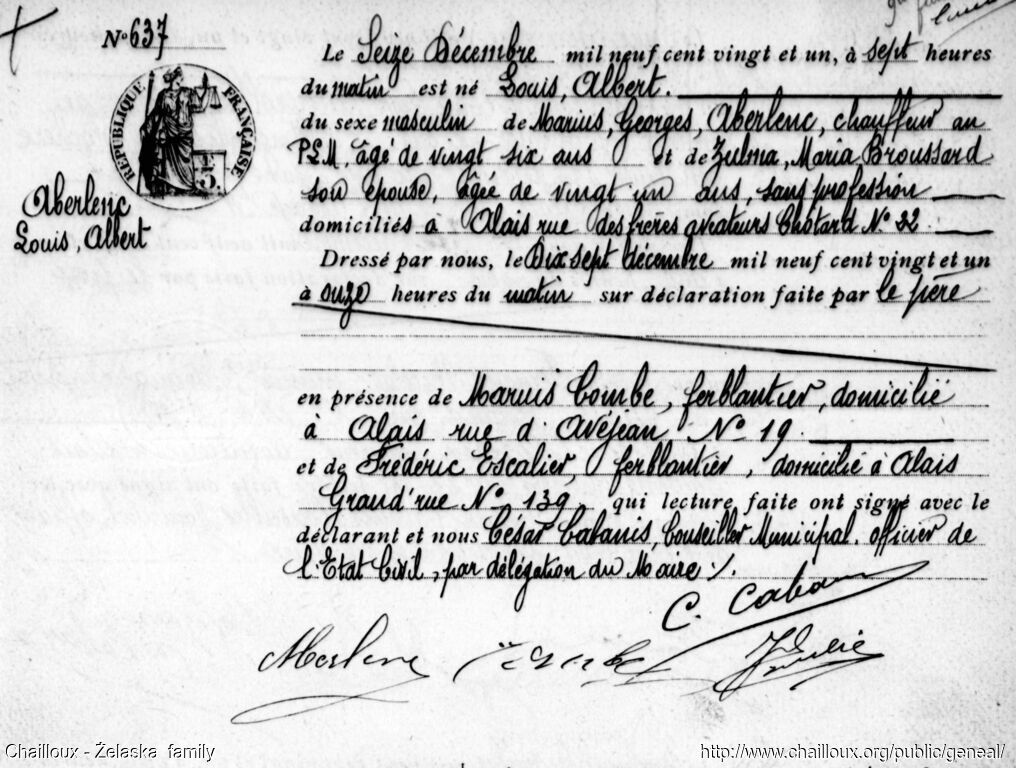 Nº 637
RÉPUBLIQUE FRANÇAISE
Aberlenc
Louis, Albert
Le Seize Décembre mil neuf cent vingt et un, à sept heures
du matin est né Louis, Albert.
du sexe masculin de Marius, Georges, Aberlenc, chauffeur au
PLM, âgé de vingt six ans et de Zulma, Maria Broussard
son épouse, âgée de vingt un ans, sans profession
domiciliés à Alais rue des frères aviateurs Chotard Nº 22.
Dressé par nous, le Dix sept décembre mil neuf cent vingt et un
à onze heures du matin sur déclaration faite par le père
en présence de Marius Combe, ferblantier, domicilié
à Alais rue d'Avéjean, Nº 19.
et de Frédéric Escalier, ferblantier, domicilié à Alais
Grand'rue Nº 139, qui lecture faite ont signé avec le
déclarant et nous César Cabanis, Conseiller Municipal. officier de
l'Etat Civil, par délégation du Maire ./.
C. Caban
Chailloux - Želaska family
http://www.chailloux.org/public/geneal/